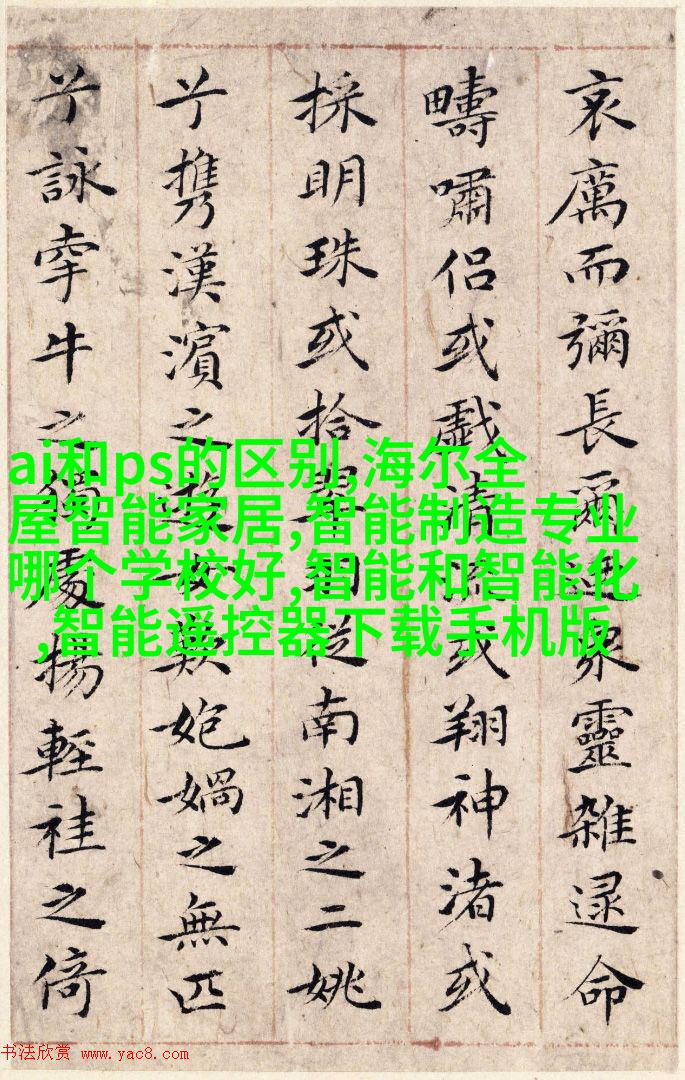 哀厲而彌長爾衆靈雜遝命
疇嘯侶或戲清或翔神渚或
採明珠或拾翠從南湘之二姚
兮携漢濱之遊歎媧之無匹
兮詠牽牛之獨處揚輕袿之倚
ai和ps的区别,海尔全
屋智能家居,智能制造专业
哪个学校好,智能和智能化
,智能遥控器下载手机版
书法欣赏 www.yac8.com